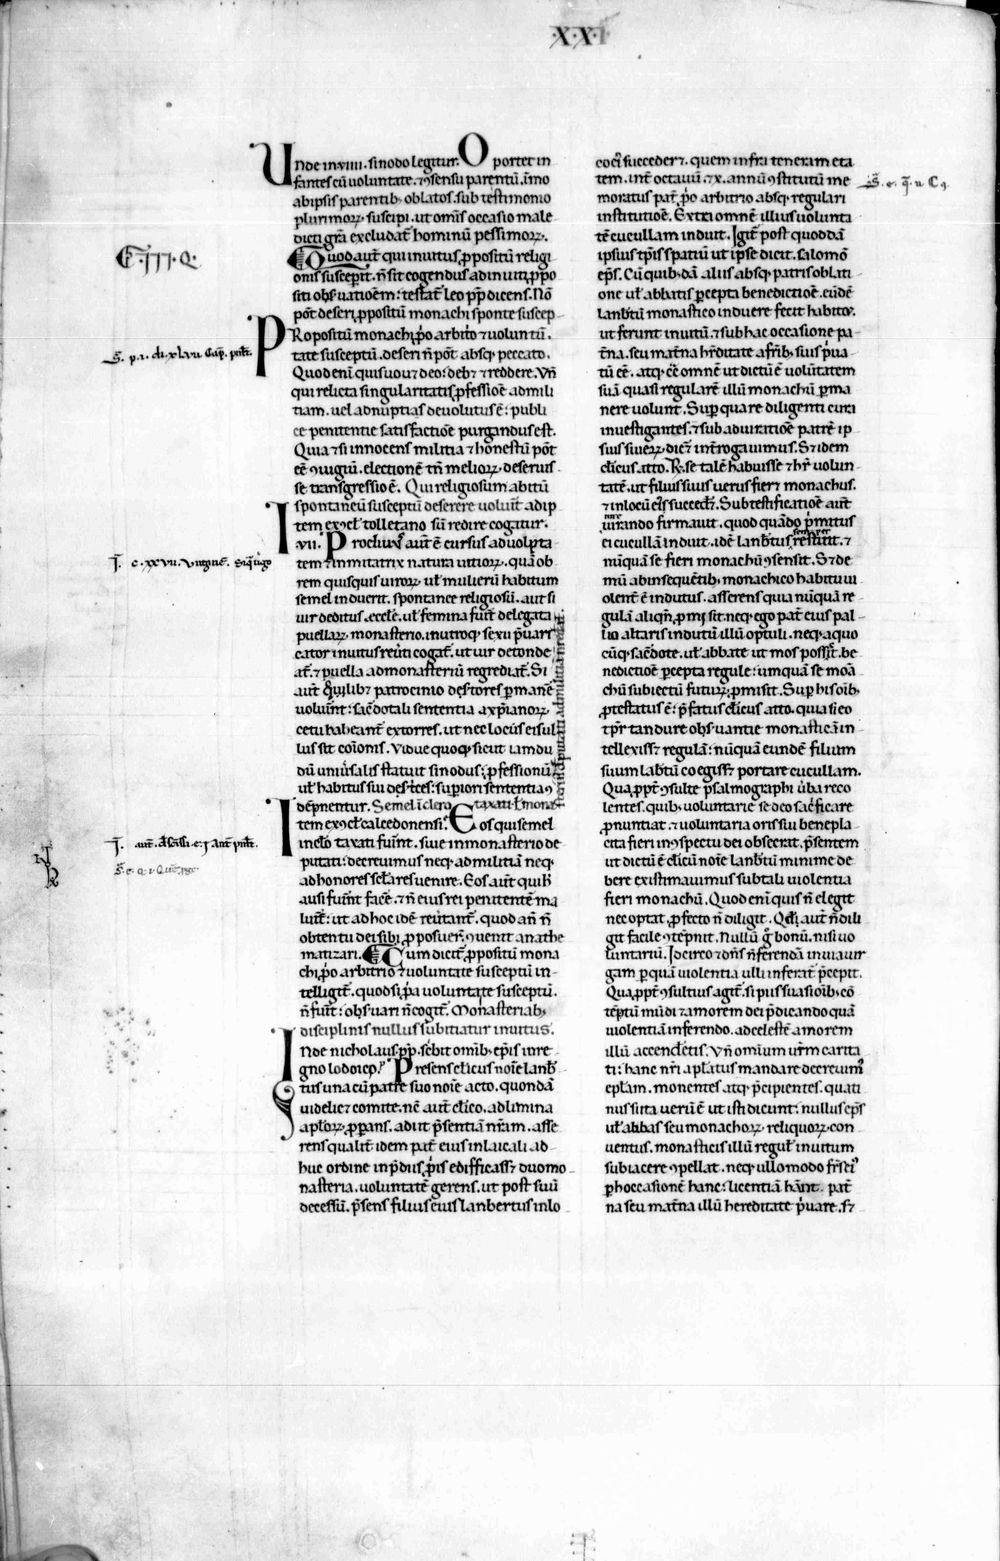 ·X·X·I
Unde in·viiii· sinodo legitur. Oportet in
fantes cū voluntate ⁊ ꝯsensu parentū. īmo
ab ipsis parentib; oblatos. sub testimonio
plurimoꝝ suscipi. ut om̄is occasio male
dicti gr̄a excludat̄ hominū pessimoꝝ.
Quod aut̄ qui invitus ꝓpositū religi
onis susceꝑit. n̄ sit cogendus
siti obs̄uatioēm: testat̄ leo pp̄ dicens. Nō
pōt deseri ꝓpositū monachi sponte suscep
Propositū monachi ꝓpo arbit̄o ⁊ volunt̄
tate susceptū. deseri n̄ pōt absq; peccato.
Quod eni quis vovit deo: deb; ⁊ reddere. Vn̄
qui relicta singularitatis ꝓfessiōe ad mili
tiam. vel ad nuptias devolutus ē: publi
ce penitentie satisfactiōe purgandus est.
Quia ⁊si innocens militia ⁊ honestū pōt
eē ꝯiugiū. electionē tn̄ melioꝝ deseruis
se transgressio ē. Qui religiosum abitū
spontaneū susceptū deserere voluīt adip
Item ex ꝯcł tolletano su redire cogatur.
·vii· Proclivus aut̄ ē cursus ad volupta
tem ⁊ inmitatrix natura vitioꝝ. quā ob
rem quisquis viroꝝ ul̄ mulierū habitum
semel induerit. spontanee religiosū. aut si
vir deditus eccłe. ul̄ femina fuīt delegata
puellaꝝ monasterio. in utroq; sexu p̄varī
cator invitus rev̄ti cogat̄. ut vir detonde
at̄. ⁊ puella ad monasteriū regrediat̄. Si
aut̄ quolib; patrocinio desertores ꝑmanē
voluīnt: sac̄dotali sententia a xp̄ianoꝝ
cetu habeant̄ extorres. ut nec locus eis ul
lus sit cōionis. Vidue quoq; sicut iamdu
dū univ̄salis statuit sinodus: ꝓfessionū
ul̄ habitus sui des̄tces: suꝑiori sententia ꝯ
dēpnentur. Semel ī clero taxati ł mona
Item ex ꝯcł calcedonensi. Eos qui semel
in clo taxati fuīnt. sive in monasterio de
putati: decrevimus neq; ad militiā neq;
ad honores scłares venire. Eos aut̄ qui h̄
ausi fuīnt facē. ⁊ n̄ eius rei penitentē ma
luīt: ut ad hoc idē rev̄tant̄. quod an̄ n̄
obtentu dei sibi ꝓposuer̄. ꝯvenit anathe
matizari. Cum dicit̄ ꝓpositū mona
chi ꝓpo arbitrio ⁊ voluntate susceptū in
telligit̄. quod si ꝓpa voluntate susceptū
n̄ fuīt: obs̄vari n̄ cogit̄. Monasteriab;
disciplinis nullus subitiatur invitus.
Unde nicholaus pp̄. sc̄bit omib; ep̄is in re
gno lodoici. Presens clicus noīe lanb̄
tus una cū patre suo noīe acto. quondā
videlic; comite. nē aut̄ cl̄ico. ad limina
apłoꝝ ꝓꝑans. adiit p̄sentiā nr̄am. asse
rens qualit̄ idem pat̄ eius in laicali ad
huc ordine in p̄diis ꝓpis edifficass; duomo
nasteria. voluntatē gerens. ut post suū
decessū. p̄sens filius eius lanbertus in lo
co ei succeder⁊. quem infra teneram eta
tem. int̄ octavū ⁊ x. annū ꝯstitutū me
moratus pat̄. ꝓpo arbitrio absq; regulari
institutiōe. Extra omnē illius volunta
tē cucullam induit. Igit̄ post quoddā
ipsius tꝑis spatiū ut ipse dicit. salomō
eps̄. Cū quib;dā aliis absq; patris oblati
one ul̄ abbatis ꝑcepta benedictiōe. eūdē
lanb̄tū monastico induere fecit habitu.
ut ferunt invitū ⁊ sub hac occasione pa
t̄na. seu mat̄na hr̄ditate a frīb; suis pri̇va
tū eē. atq; eē omnē ut dictū ē volūtatem
suā quasi regularē illū monachū ꝑma
nere volunt. Super quare diligenti cura
investigantes. ⁊ sub adiuratiōe patrē ip
sius int̄rogavimus. S; idem
clicus atto. R̄. se talē habuisse ⁊ hr̄ volun
tatē. ut filius suus verus fier⁊ monachus.
⁊ in locū eius succed;. Sub testificatiōe aut̄
iurando firmavit. quod quādo p̄mitus
ei cucullā induit. idē lanb̄tus restitit. ⁊
nūquā se fieri monachū ꝯsensit. S; de
mū ab insequētib; monachico habitu vi
olent̄ ē indutus. asserens quia nūquā re
gulā aliqn̄ ꝓmisit. neq; ego pat̄ eius pal
lio altaris indutū illū optuli. neq; a quo
cūq; sac̄dote. ul̄ abbate ut mos poss;. be
nedictiōe ꝑcepta regule: umquā se monā
chū subiectū futuꝝ ꝓmisit. Suꝑ his oīb;
ꝓtestatus ē: p̄fatus clicus atto. quia si eo
tꝑr tandure obs̄vantie monasticā in
tellexiss; regulā: nūquā eundē filium
suum lab̄tū coegiss; portare cucullam.
Qua ꝓpt̄ ꝯsulte psalmographi v̄ba reco
lentes. quib; voluntarie se deo sac̄ficare
ꝓnuntiat. ⁊ voluntaria oris sui benepla
cita fieri in ꝯspectu dei obsecrat. p̄sentem
ut dictū ē clicū noīe lanb̄tū minime de
bere existimavimus sub tali violentia
fieri monachū. Quod eni quis n̄ elegit
nec optat. ꝓfecto n̄ diligit. Qd̄ aut̄ n̄ dili
git facile ꝯtēpnit. Nullū g̊ bonū. nisi vo
luntariū. Idcirco ⁊ dn̄s n̄ ferendā in via vir
gam ꝑ quā violentia ulli inferat̄ p̄cepit.
Qua ꝓpt̄ ꝯsultius agit̄. si piis suasioīb; cō
tēptū mūdi ⁊ amorem dei p̄dicando quā
violentiā inferendo. ad celestē amorem
illū accendetis. Vn̄ omīum vr̄m carita
ti: hanc nr̄i apłatus mandare decrevim
epłam. monentes atq; p̄cipientes. quati
nus si ita verū ē ut isti dicunt. nullus ep̄s
ul̄ abbas seu monachoꝝ reliquoꝝ con
ventus. monasticis illū reguł invitum
subiacere ꝯpellat. neq; ullo modo
ꝑ hoccasionē hanc: licentiā hānt. pat̄
na seu mat̄na illū hereditate p̄vare. S;
C·III·Q·